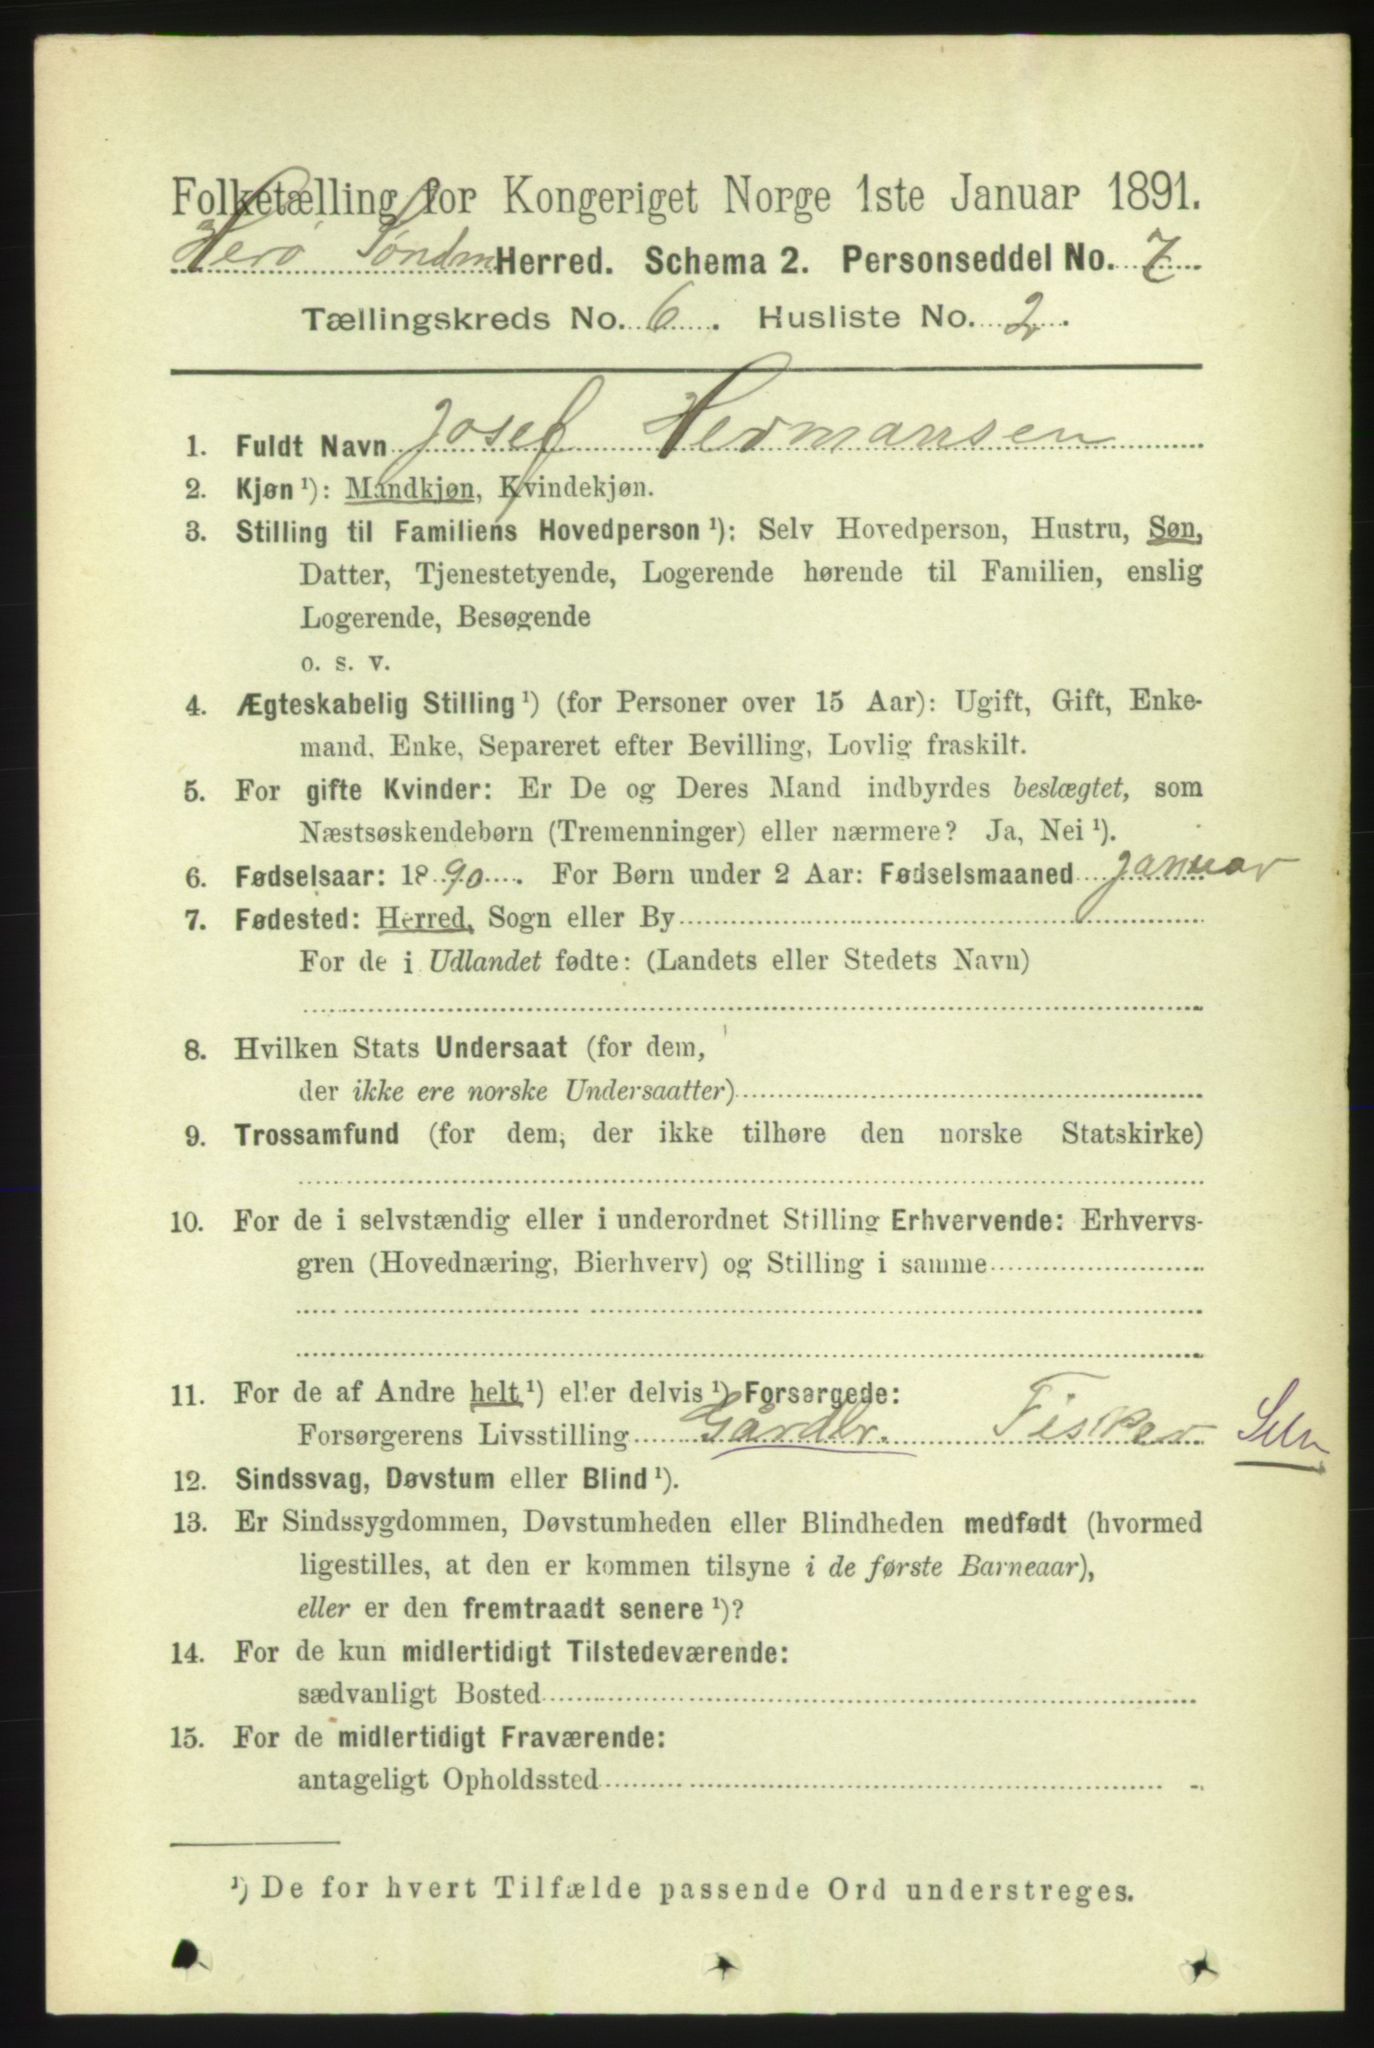 Folketælling for Kongeriget Norge 1ste Januar 1891.
Herø Søndm Herred. Schema 2. Personseddel No. 7
Tællingskreds No. 6. Husliste No. 2.
1. Fuldt Navn Josef Hermansen
2. Kjøn ¹): Mandkjøn, Kvindekjøn.
3. Stilling til Familiens Hovedperson ¹): Selv Hovedperson, Hustru, Søn,
Datter, Tjenestetyende, Logerende hørende til Familien, enslig
Logerende, Besøgende
o. s. v.
4. Ægteskabelig Stilling ¹) (for Personer over 15 Aar): Ugift, Gift, Enke-
mand, Enke, Separeret efter Bevilling, Lovlig fraskilt.
5. For gifte Kvinder: Er De og Deres Mand indbyrdes beslægtet, som
Næstsøskendebørn (Tremenninger) eller nærmere? Ja, Nei ¹).
6. Fødselsaar: 1890. For Børn under 2 Aar: Fødselsmaaned Januar
7. Fødested: Herred, Sogn eller By
For de i Udlandet fødte: (Landets eller Stedets Navn)
8. Hvilken Stats Undersaat (for dem,
der ikke ere norske Undersaatter)
9. Trossamfund (for dem, der ikke tilhøre den norske Statskirke)
10. For de i selvstændig eller i underordnet Stilling Erhvervende: Erhvervs-
gren (Hovednæring, Bierhverv) og Stilling i samme
11. For de af Andre helt ¹) eller delvis ¹) Forsørgede:
Forsørgerens Livsstilling Gårdbr. Fisker Selv
12. Sindssvag, Døvstum eller Blind ¹).
13. Er Sindssygdommen, Døvstumheden eller Blindheden medfødt (hvormed
ligestilles, at den er kommen tilsyne i de første Barneaar),
eller er den fremtraadt senere ¹)?
14. For de kun midlertidigt Tilstedeværende:
sædvanligt Bosted
15. For de midlertidigt Fraværende:
antageligt Opholdssted
¹) De for hvert Tilfælde passende Ord understreges.